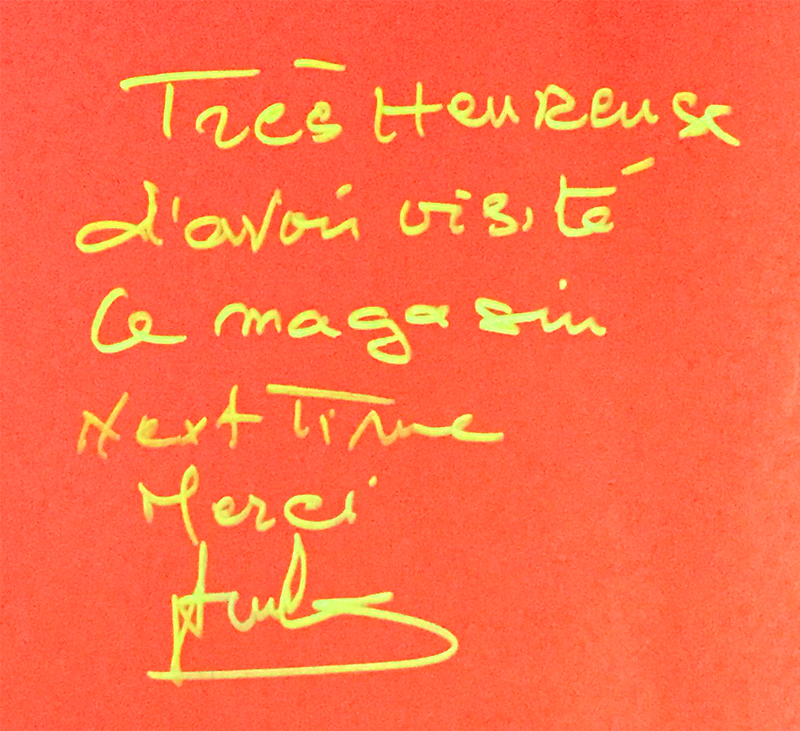 Très Heureuse
d'avoir visité
Ce magasin
Next Time
Merci